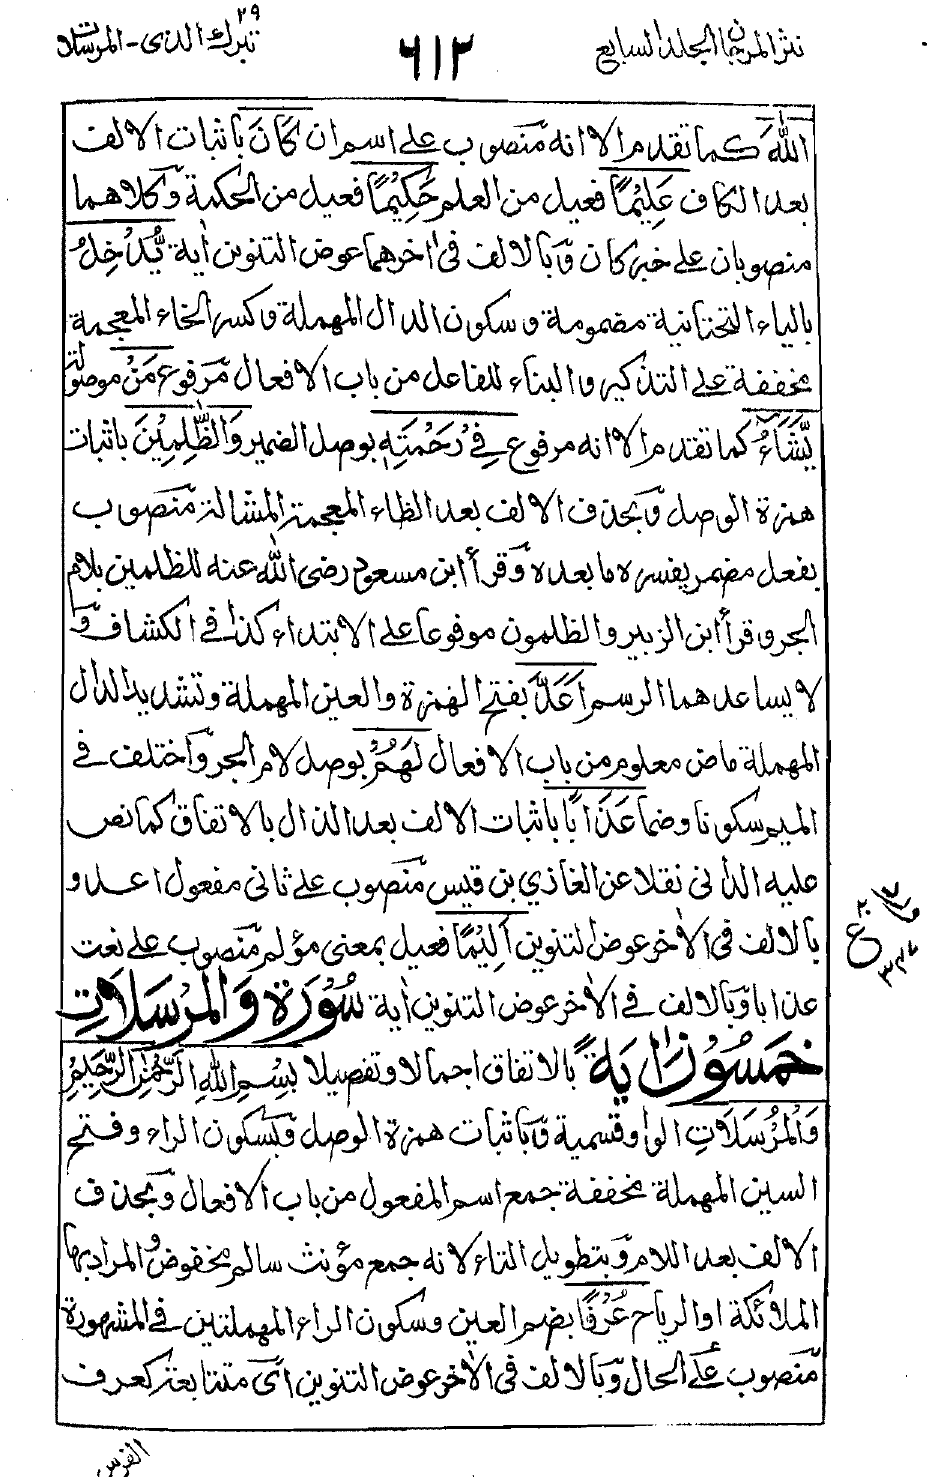 نثر المرجان المجلد السابع
٦١٢
تبرك الذى ٢٩ - المرسلت
اللّٰهَ كما تقدم الا انه منصوب على اسم ان كَانَ باثبات الالف
بعد الكاف عَلِيْمًا فعيل من العلم حَكِيْمًا فعيل من الحكمة وكلاهما
منصوبان على خبر كان وبالالف فى اخرهما عوض التنوين اية يُّدْخِلُ
بالياء التحتانية مضمومة وسكون الدال المهملة وكسر الخاء المعجمة
مخففة على التذكير والبناء للفاعل من باب الافعال مرفوع مَنْ موصولة
يَّشَآءُ كما تقدم الا انه مرفوع فِيْ رَحْمَتِهٖ بوصل الضمير وَالظّٰلِمِيْنَ باثبات
همزة الوصل وبحذف الالف بعد الظاء المعجمة المشالة منصوب
بفعل مضمر يفسره ما بعده وقرأ ابن مسعود رضى الله عنه للظلمين بلام
الجر وقرأ ابن الزبير والظلمون مرفوعا على الابتداء كذا فى الكشاف و
لا يساعدهما الرسم اَعَدَّ بفتح الهمزة والعين المهملة وتشديد الدال
المهملة ماض معلوم من باب الافعال لَهُمْ بوصل لام الجر واختلف فى
الميم سكونا وضما عَذَابًا باثبات الالف بعد الذال بالاتفاق كما نص
عليه الدانى نقلا عن الغازي بن قيس منصوب على ثانى مفعول اعد و
بالالف فى الاٰخر عوض التنوين اَلِيْمًا فعيل بمعنى مؤلم منصوب على نعت
عذابا وبالالف فى الاٰخر عوض التنوين اٰية سُوْرَة وَالْمُرْسَلَاتِ
خَمْسُوْنَ اٰيَةً بالاتفاق اجمالا وتفصيلا بِسْمِ اللهِ الرَّحْمٰنِ الرَّحِيْمِ
وَالْمُرْسَلَاتِ الواو قسمية وباثبات همزة الوصل وبسكون الراء وفتح
السين المهملة مخففة جمع اسم المفعول من باب الافعال وبحذف
الالف بعد اللام وبتطويل التاء لانه جمع مؤنث سالم مخفوض والمراد بها
الملائكة او الرياح عُرْفًا بضم العين وسكون الراء المهملتين فى المشهورة
منصوب على الحال وبالالف فى الاٰخر عوض التنوين اى متتابعة كعرف
الفرس